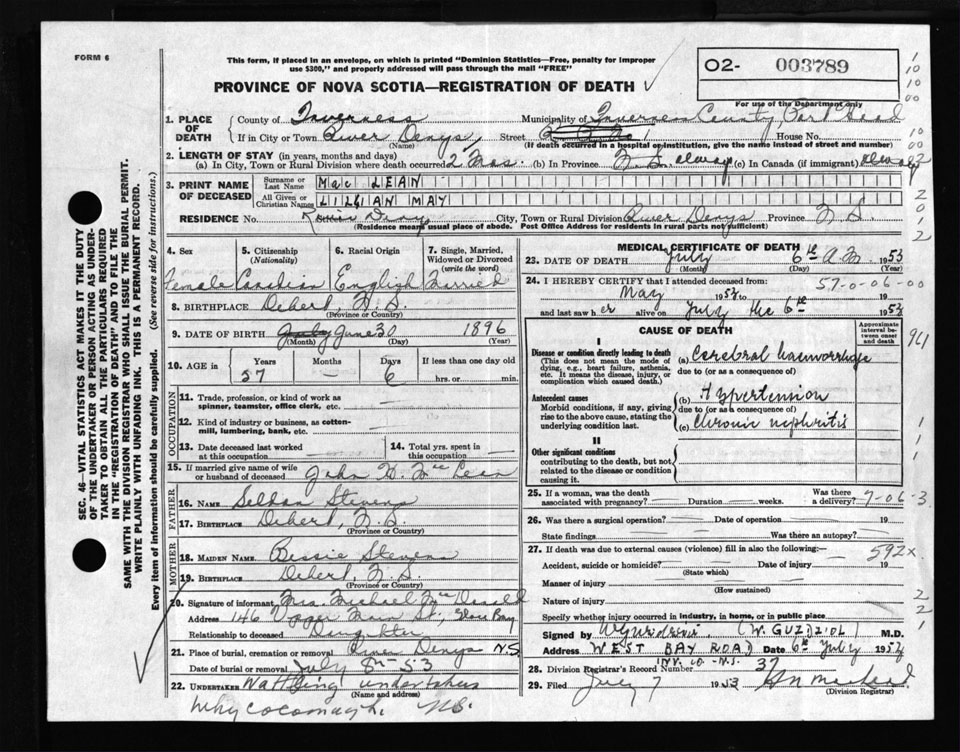 FORM 6
This form, if placed in an envelope, on which is printed "Dominion Statistics—Free, penalty for improper
use $300," and properly addressed will pass through the mail "FREE"
02- 003789
PROVINCE OF NOVA SCOTIA—REGISTRATION OF DEATH
For use of the Department only
1. PLACE OF DEATH
County of Inverness Municipality of Inverness County, Port Hood
If in City or Town River Denys, (Name) Street House No.
(If death occurred in a hospital or institution, give the name instead of street and number)
2. LENGTH OF STAY (in years, months and days)
(a) In City, Town or Rural Division where death occurred 2 Mos. (b) In Province N.S. always (c) In Canada (if immigrant) always
3. PRINT NAME OF DECEASED
Surname or Last Name Mac LEAN
All Given or Christian Names LILLIAN MAY
RESIDENCE No. Street City, Town or Rural Division River Denys Province N.S.
(Residence means usual place of abode. Post Office Address for residents in rural parts not sufficient)
4. Sex 5. Citizenship (Nationality) 6. Racial Origin 7. Single, Married, Widowed or Divorced (write the word)
Female Canadian English Married
8. BIRTHPLACE Debert, N.S.
(Province or Country)
9. DATE OF BIRTH July June 30 1896
(Month) (Day) (Year)
10. AGE in Years Months Days If less than one day old
57 — 6 hrs. or min.
OCCUPATION
11. Trade, profession, or kind of work as spinner, teamster, office clerk, etc.
12. Kind of industry or business, as cotton-mill, lumbering, bank, etc.
13. Date deceased last worked at this occupation 14. Total yrs. spent in this occupation
15. If married give name of wife or husband of deceased John D. McLean
FATHER
16. NAME Stevens
17. BIRTHPLACE Debert, N.S.
(Province or Country)
MOTHER
18. MAIDEN NAME Bessie Stevens
19. BIRTHPLACE Debert, N.S.
(Province or Country)
20. Signature of informant Mrs. Michael McDonald
Address 146 Upper Main St., Glace Bay
Relationship to deceased Daughter
21. Place of burial, cremation or removal River Denys N.S.
Date of burial or removal July 8th-53
22. UNDERTAKER Watling undertaker
(Name and address)
Whycocomagh. N.S.
MEDICAL CERTIFICATE OF DEATH
23. DATE OF DEATH July 6th A.M. 1953
(Month) (Day) (Year)
24. I HEREBY CERTIFY that I attended deceased from: 57-0-06-00
May 1953 to 19
and last saw her alive on July the 6th 1953
CAUSE OF DEATH
Approximate interval between onset and death
I
Disease or condition directly leading to death
(This does not mean the mode of dying, e.g., heart failure, asthenia, etc. It means the disease, injury, or complication which caused death.)
(a) Cerebral haemorrhage
due to (or as a consequence of)
Antecedent causes
Morbid conditions, if any, giving rise to the above cause, stating the underlying condition last.
(b) Hypertension
due to (or as a consequence of)
(c) Chronic nephritis
II
Other significant conditions
contributing to the death, but not related to the disease or condition causing it.
25. If a woman, was the death associated with pregnancy? Duration weeks. Was there a delivery?
26. Was there a surgical operation? Date of operation 19
State findings Was there an autopsy?
27. If death was due to external causes (violence) fill in also the following:— 592x
Accident, suicide or homicide? Date of injury 19
(State which)
Manner of injury
(How sustained)
Nature of injury
Specify whether injury occurred in industry, in home, or in public place
Signed by (W. GUZDZIOL) M.D.
Address WEST BAY ROAD Date 6th July 1953
INV. CO. N.S.
28. Division Registrar's Record Number 37
29. Filed July 7 1953
(Division Registrar)
SEC. 46—VITAL STATISTICS ACT MAKES IT THE DUTY
OF THE UNDERTAKER OR PERSON ACTING AS UNDER-
TAKER TO OBTAIN ALL THE PARTICULARS REQUIRED
IN THE "REGISTRATION OF DEATH" AND TO FILE THE
SAME WITH THE DIVISION REGISTRAR WHO SHALL ISSUE THE BURIAL PERMIT.
WRITE PLAINLY WITH UNFADING INK. THIS IS A PERMANENT RECORD.
Every item of information should be carefully supplied. (See reverse side for instructions.)